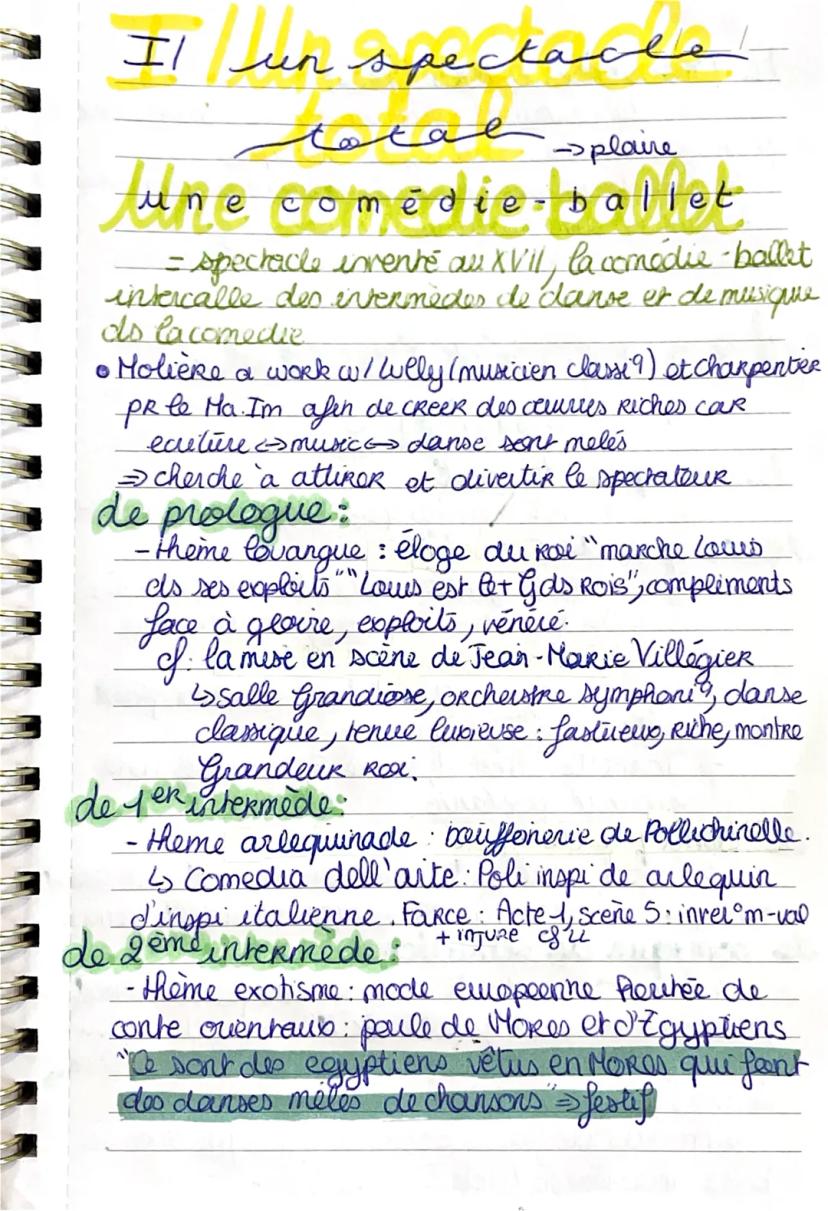 I/ un spectacle
total → plaire
Une comédie-ballet
= spectacle inventé au XVII, la comédie-ballet
intercalle des intermèdes de danse et de musique
ds la comedie
• Molière a work w/ Lully (musicien classiq) et charpentier
PR le Ma.Im afin de CREER des œuvres RicHes caR
ecriture ↔ music ↔ danse sont melés
⇒ cherche à attirer et divertir le spectateur
de prologue :
- thème louangue : éloge du Roi "marche Louis
ds ses exploits" "Louis est le + G ds Rois", compliments
face à gloire, exploits, vénéré.
cf. la mise en scène de Jean-Marie Villégier
↳ salle Grandiose, orchestre symphoniq, danse
classique, tenue luxieuse : fastueux, Riche, montre
Grandeur Roi.
de 1er intermède :
- theme arlequinade : bouffonerie de Pollichinelle.
↳ Comedia dell'arte : Poli inspi de arlequin
d'inspi italienne. FaRce : Acte 1, scène 5 : inver° m-val
+ injure
de 2ème intermède :
- thème exotisme : mode europeenne de
conte orientaux : de Mores et d'Egyptiens
"Ce sont des egyptiens vêtus en Mores qui font
des danses mêlés de chansons" ⇒ festif